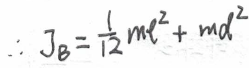 ∴ J_B = \frac{1}{12} ml² + md²